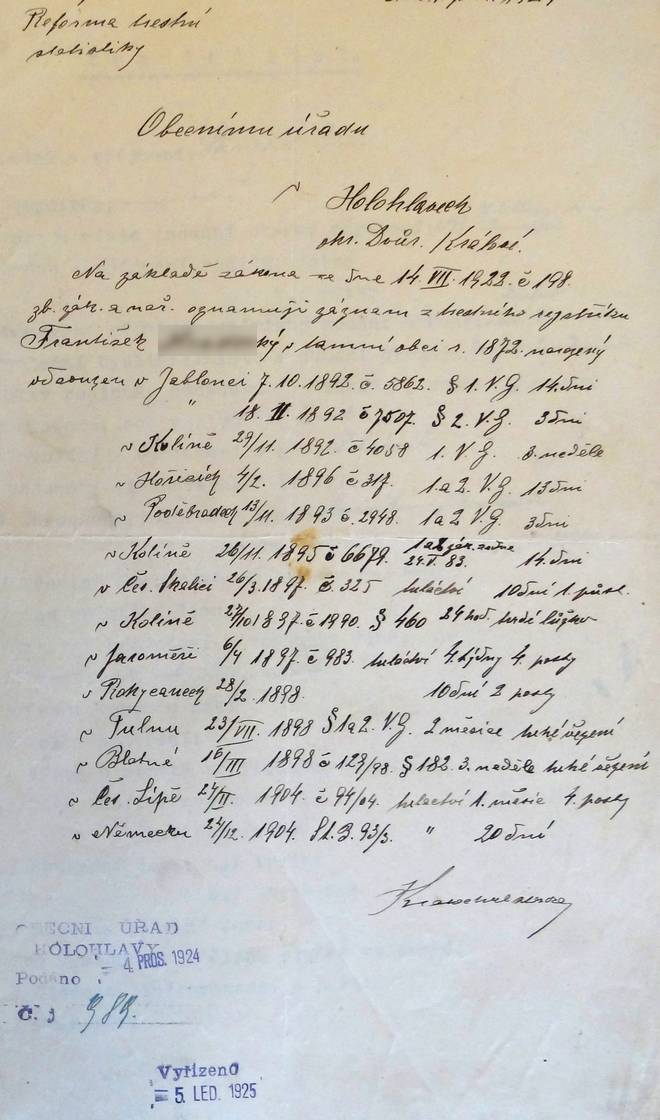 Reforma trestní
statistiky
Obecnímu úřadu
v Holohlavech
okr. Dvůr. Králové.
Na základě zákona ze dne 14. VII. 1922. č 198.
sb. zák. a nař. oznamuji záznam z trestního rejstříku
František ký v tamní obci r. 1872. narozený
odsouzen v Jablonci 7. 10. 1892. č. 5862. § 1. V. G. 14. dní
" 18. II. 1892 č 7507. § 2. V. G. 3 dní
v Kolíně 29/11. 1892. č 4058 1. V G. 3. neděle
v Hořicích 4/2. 1896 č 317. 1. a 2. V. G. 13 dní
v Poděbradech 13/11. 1893 č. 2948. 1 a 2 V. G 3 dní
v Kolíně 26/11. 1895 č 6679. 1 a 2 zák. ze dne 24. V. 83. 14. dní
v Čes. Skalici 26/3. 1897. č. 325 tuláctví 10 dní 1. půst.
v Kolíně č 1990. § 460 24 hod. tvrdé lůžko
v Jaroměři 6/4 1897. č 983. tuláctví 4. týdny 4. posty
v Rokycanech 28/2. 1898. 10 dní 2 posty
v Tulnu 23/VII. 1898 § 1 a 2. V. G. 2 měsíce těžké vězení
v Blatné 16/III 1898 č 123/98. § 182. 3. neděle těžké vězení
v Čes. Lípě 24/II. 1904. č 94/04. tuláctví 1. měsíc 4. posty
v Německu 24/12. 1904. St. B. 93/3. " 20 dní
OBECNÍ ÚŘAD
HOLOHLAVY
Podáno = 4. PROS. 1924
Č. j 989.
Vyřízeno
= 5. LED. 1925